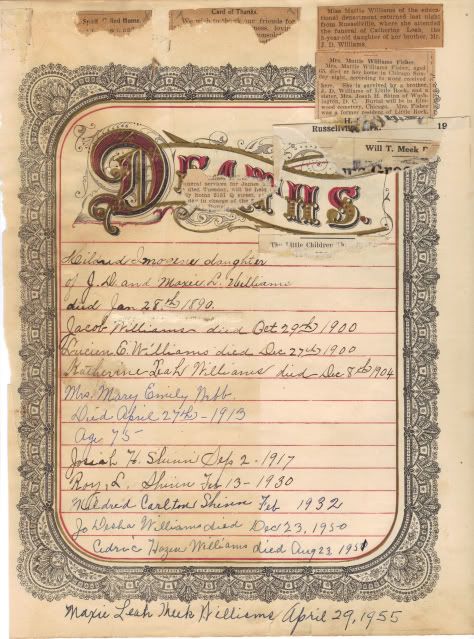 Spirit Called Home.
Card of Thanks.
We wish to thank our friends for
Miss Mattie Williams of the educa-
tional department returned last night
from Russellville, where she attended
the funeral of Catherine Leah, the
8-year-old daughter of her brother, Mr.
J. D. Williams.
Mrs. Mattie Williams Fisher.
Mrs. Mattie Williams Fisher, aged
died at her home in Chicago
night, according to word received
here. She is survived by a brother,
J. D. Williams of Little Rock, and a
sister, Mrs. Leah M. Baird of Wash-
ington, D. C. Burial will be in Elm-
wood cemetery, Chicago. Mrs. Fisher
was a former resident of Little Rock.
Russellville
19
Will T. Meek
DEATHS.
funeral services for James
died Tuesday, will be held
in charge of the
The Little Children
Imogene daughter
of J. D. and Maxie L. Williams
died Jan 28th 1890.
Jacob Williams died Oct 29th 1900
Lucien E. Williams died Dec 27th 1900
Katherine Leah Williams died Dec 8th 1904
Mrs. Mary Emily
Died April 27th - 1913
Age 75
Josiah H. Shinn Sep 2 - 1917
Roy S. Shinn Feb 13 - 1930
Mildred Carlton Shinn Feb 1932
Jo Desha Williams died Dec 23, 1950
Cedric Hazen Williams died Aug 23 1951
Maxie Leah Meek Williams April 29, 1955